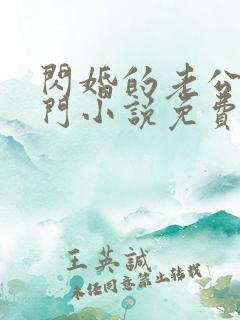 閃婚的老公
門小說免費
王英誠
未经同意禁止转载